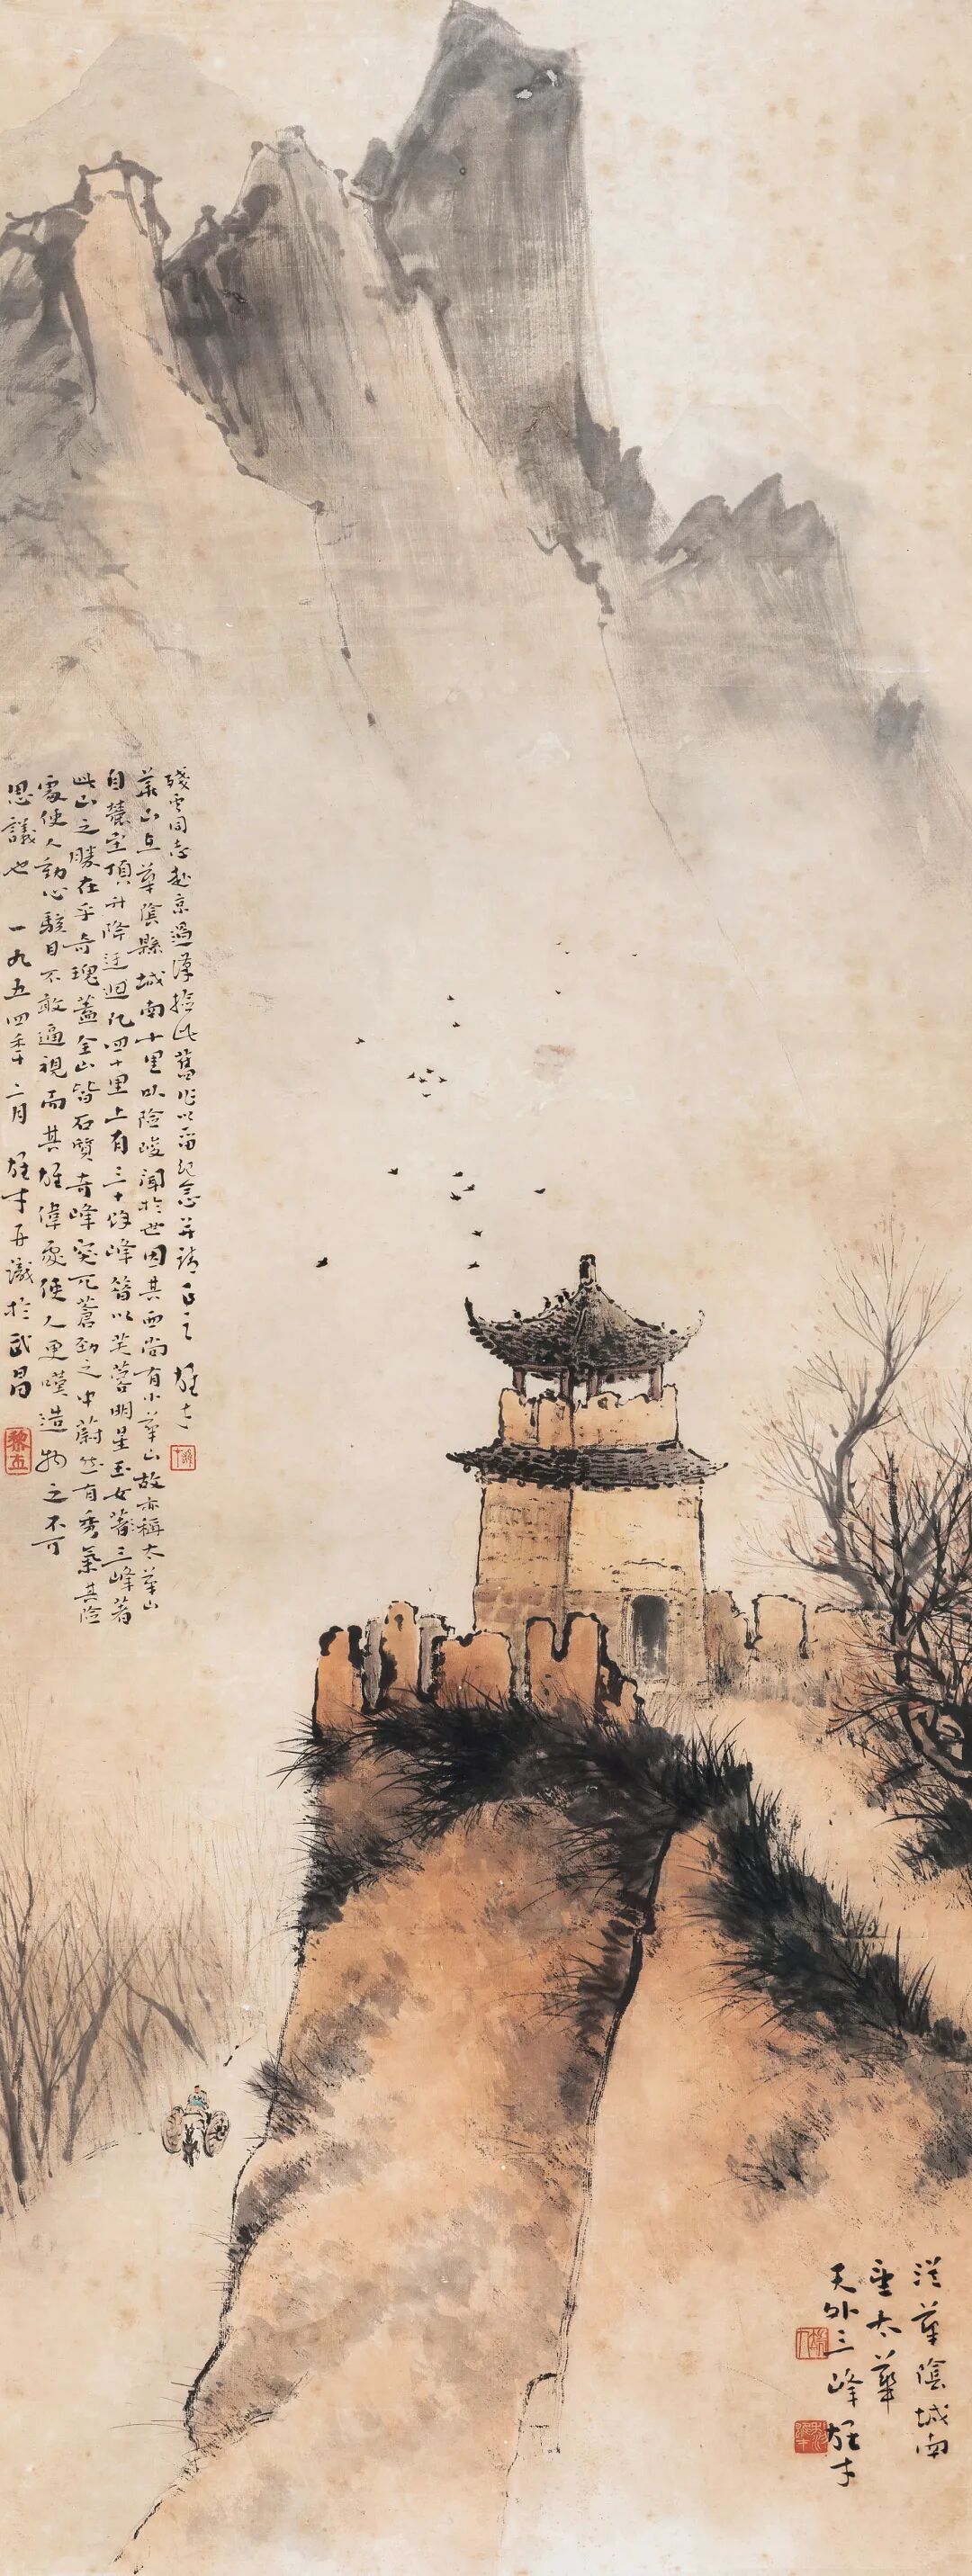 從華陰城南
望太華
天外三峰 雄才
殘雲同志赴京過漢撿此舊作以留紀念并請正之 雄才
華山在華陰縣城南十里以險峻聞於世因其西尚有小華山故亦稱太華山
自麓至頂升降迂迴凡四十里上有三十餘峰皆以芙蓉明星玉女蓍三峰著
此山之勝在乎奇瑰蓋全山皆石質奇峰突兀蒼勁之中蔚然有秀氣其險
處使人動心駭目不敢逼視而其雄偉處使人更嘆造物之不可
思議也 一九五四年二月 雄才再識於武昌